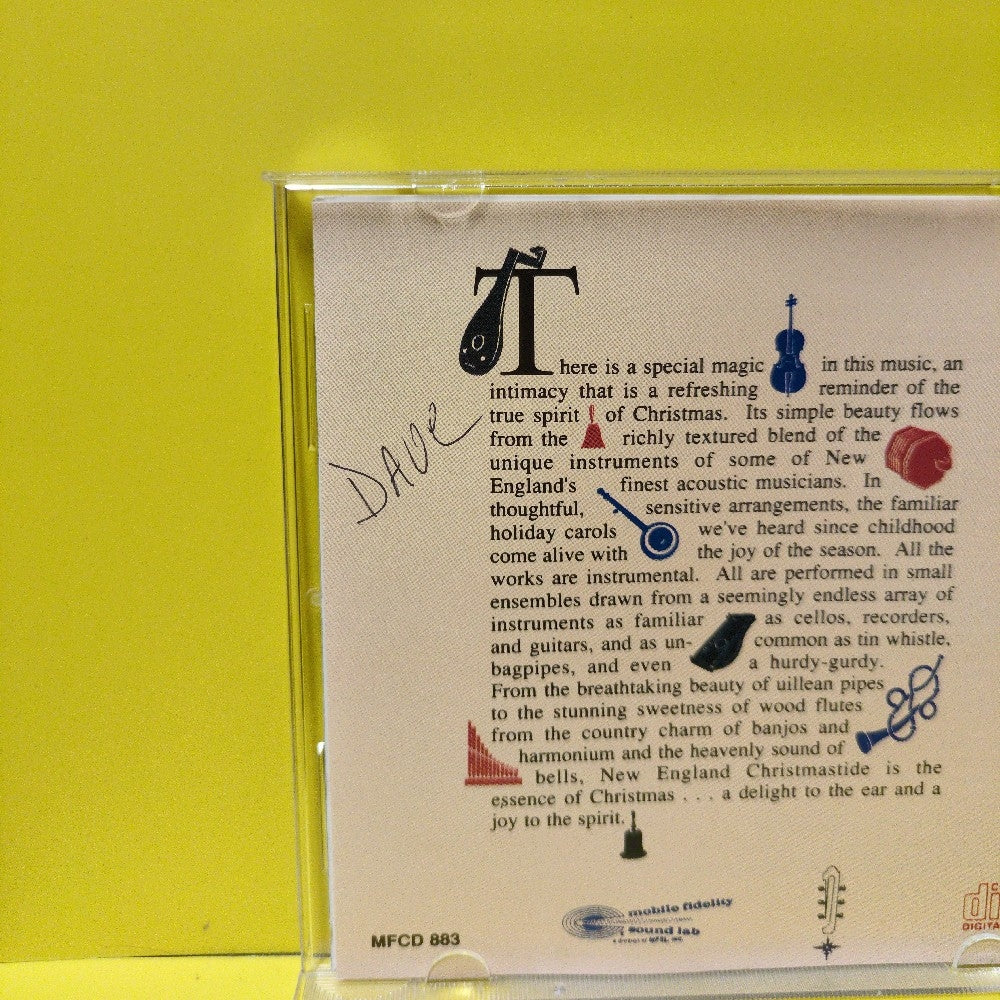 There is a special magic in this music, an
intimacy that is a refreshing reminder of the
true spirit of Christmas. Its simple beauty flows
from the richly textured blend of the
unique instruments of some of New
England's finest acoustic musicians. In
thoughtful, sensitive arrangements, the familiar
holiday carols we've heard since childhood
come alive with the joy of the season. All the
works are instrumental. All are performed in small
ensembles drawn from a seemingly endless array of
instruments as familiar as cellos, recorders,
and guitars, and as un- common as tin whistle,
bagpipes, and even a hurdy-gurdy.
From the breathtaking beauty of uillean pipes
to the stunning sweetness of wood flutes
from the country charm of banjos and
harmonium and the heavenly sound of
bells, New England Christmastide is the
essence of Christmas . . . a delight to the ear and a
joy to the spirit.
DAVE
mobile fidelity
sound lab
MFCD 883
di
DIGITA